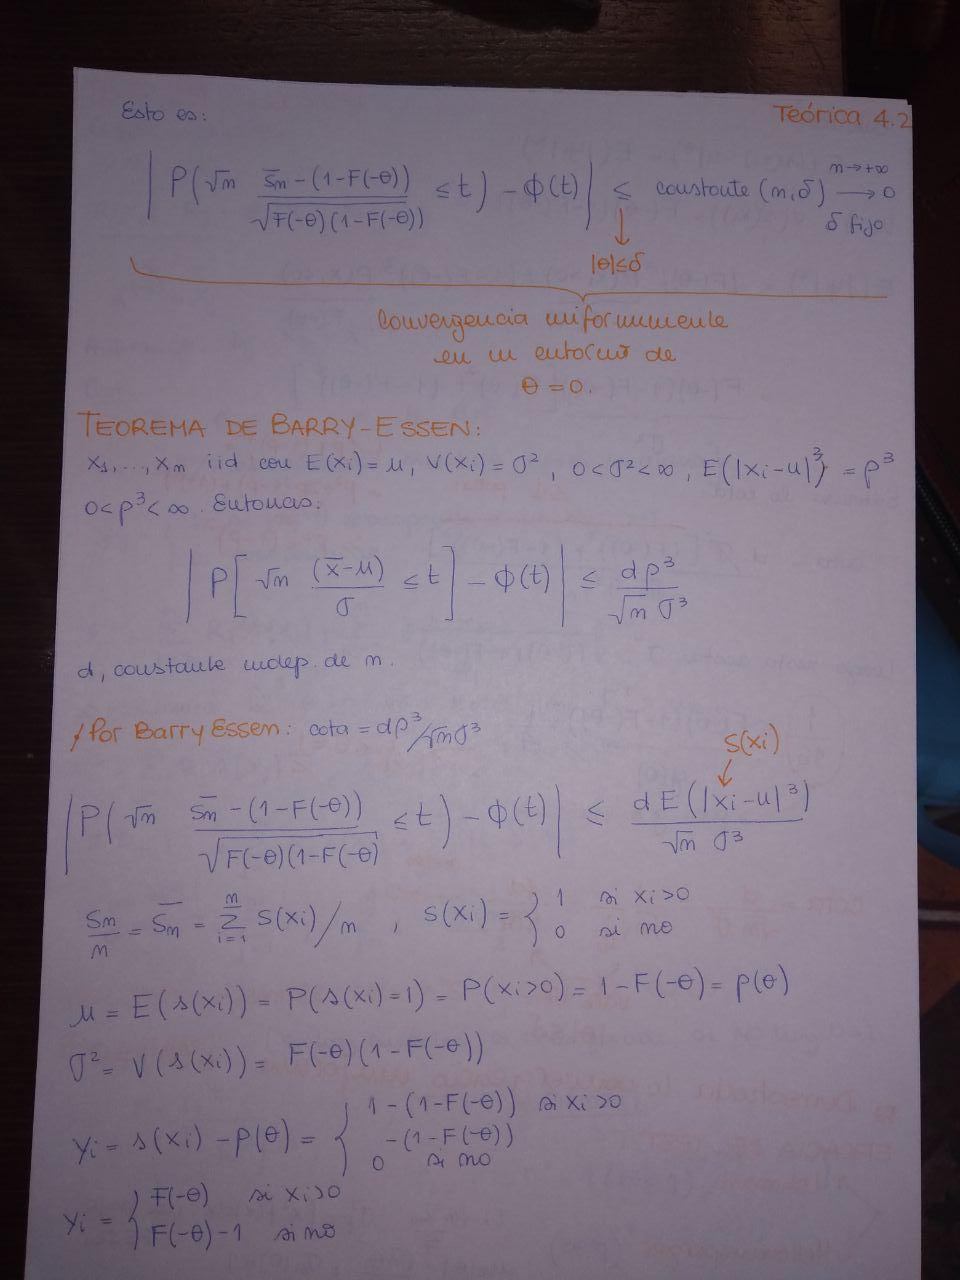 Esto es:
Teórica 4.2
| P(√n (S̄n-(1-F(-θ)))/√(F(-θ)(1-F(-θ))) ≤ t) - Φ(t) | ≤ constante (n,δ) ⟶ 0
n→+∞
δ fijo
|θ|≤δ
Convergencia uniformemente
en un entorno de
θ=0.
TEOREMA DE BARRY-ESSEN:
X1,...,Xn iid con E(Xi)=μ, V(Xi)=σ², 0<σ²<∞, E(|Xi-μ|³) = ρ³
0<ρ³<∞. Entonces:
| P[ √n (x̄-μ)/σ ≤ t ] - Φ(t) | ≤ dρ³/(√n σ³)
d, constante indep. de n.
Por Barry Essen: cota = dρ³/√nσ³
s(xi)
| P( √n (S̄n-(1-F(-θ))/√(F(-θ)(1-F(-θ)) ≤ t ) - Φ(t) | ≤ dE(|xi-μ|³)/(√n σ³)
Sn/n = S̄n = Σ_{i=1}^{n} s(xi)/n , s(xi) = { 1 si xi>0
0 si no
μ = E(s(xi)) = P(s(xi)=1) = P(xi>0) = 1-F(-θ) = p(θ)
σ² = V(s(xi)) = F(-θ)(1-F(-θ))
Yi = s(xi) - p(θ) = { 1-(1-F(-θ)) si xi>0
-(1-F(-θ))
0 si no
Yi = { F(-θ) si xi>0
F(-θ)-1 si no